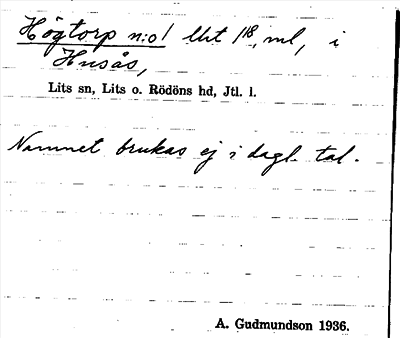 Högtorp n:o 1 lht 1/8, ml, i
Husås,
Lits sn, Lits o. Rödöns hd, Jtl. l.
Namnet brukas ej i dagl. tal.
A. Gudmundson 1936.